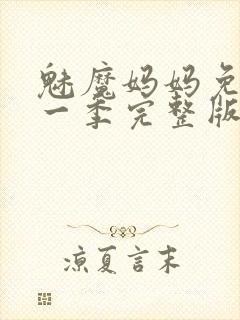 魅魔妈妈免
一季完整版
凉夏言末